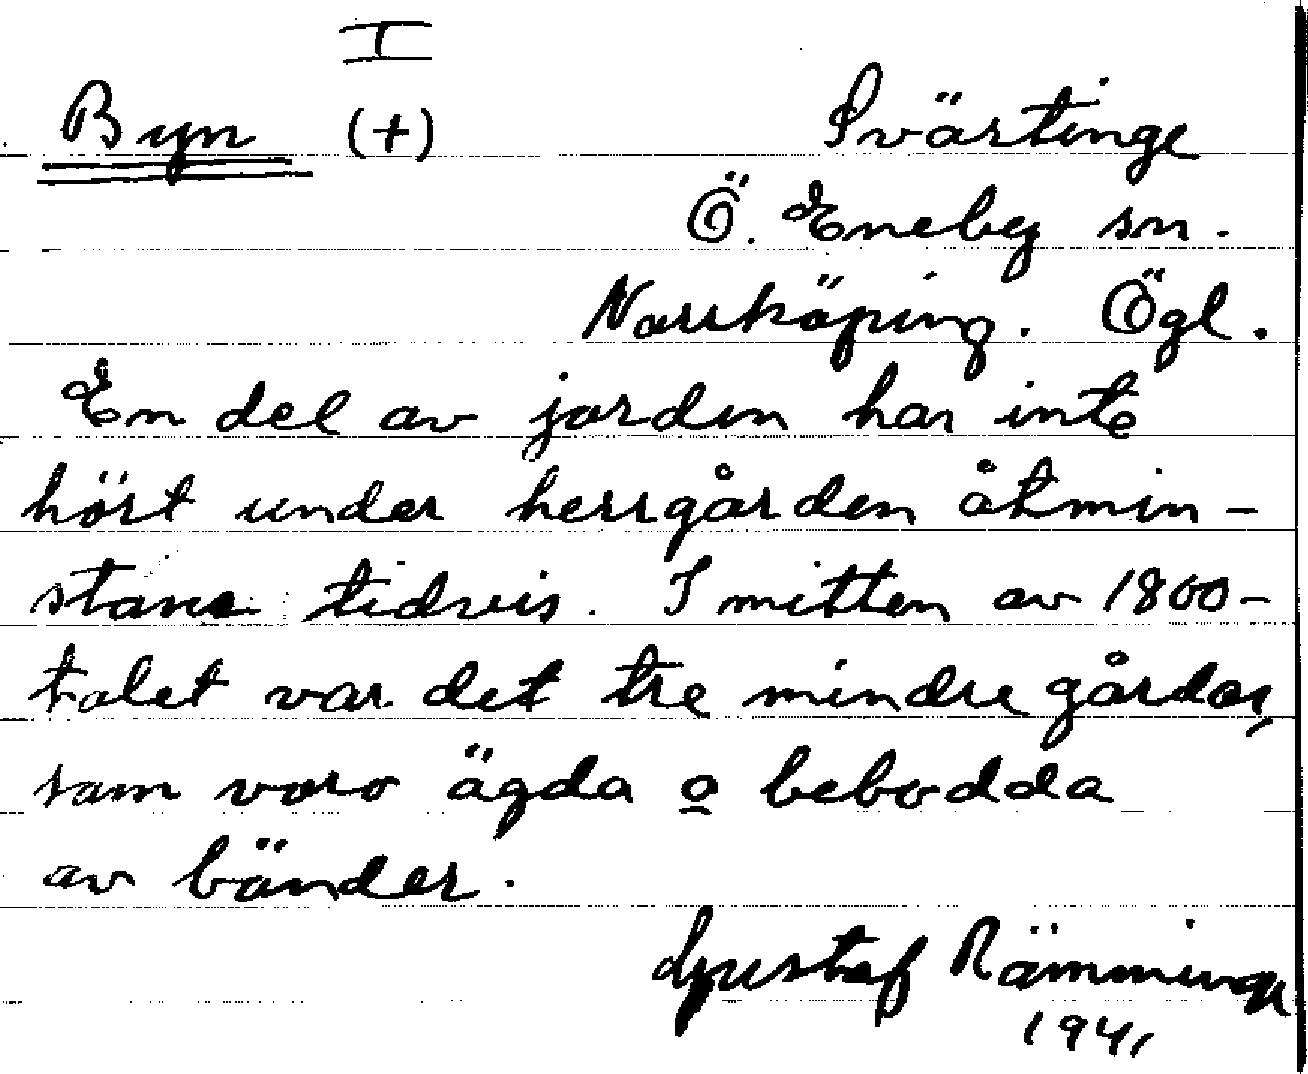 I
Byn (+) Svärtinge
Ö. Eneby sn.
Norrköping. Ögl.
En del av jorden har inte
hört under herrgården åtmin-
stone tidvis. I mitten av 1800-
talet var det tre mindre gårdar,
som voro ägda o bebodda
av bönder.
Gustaf Rämminge
1941